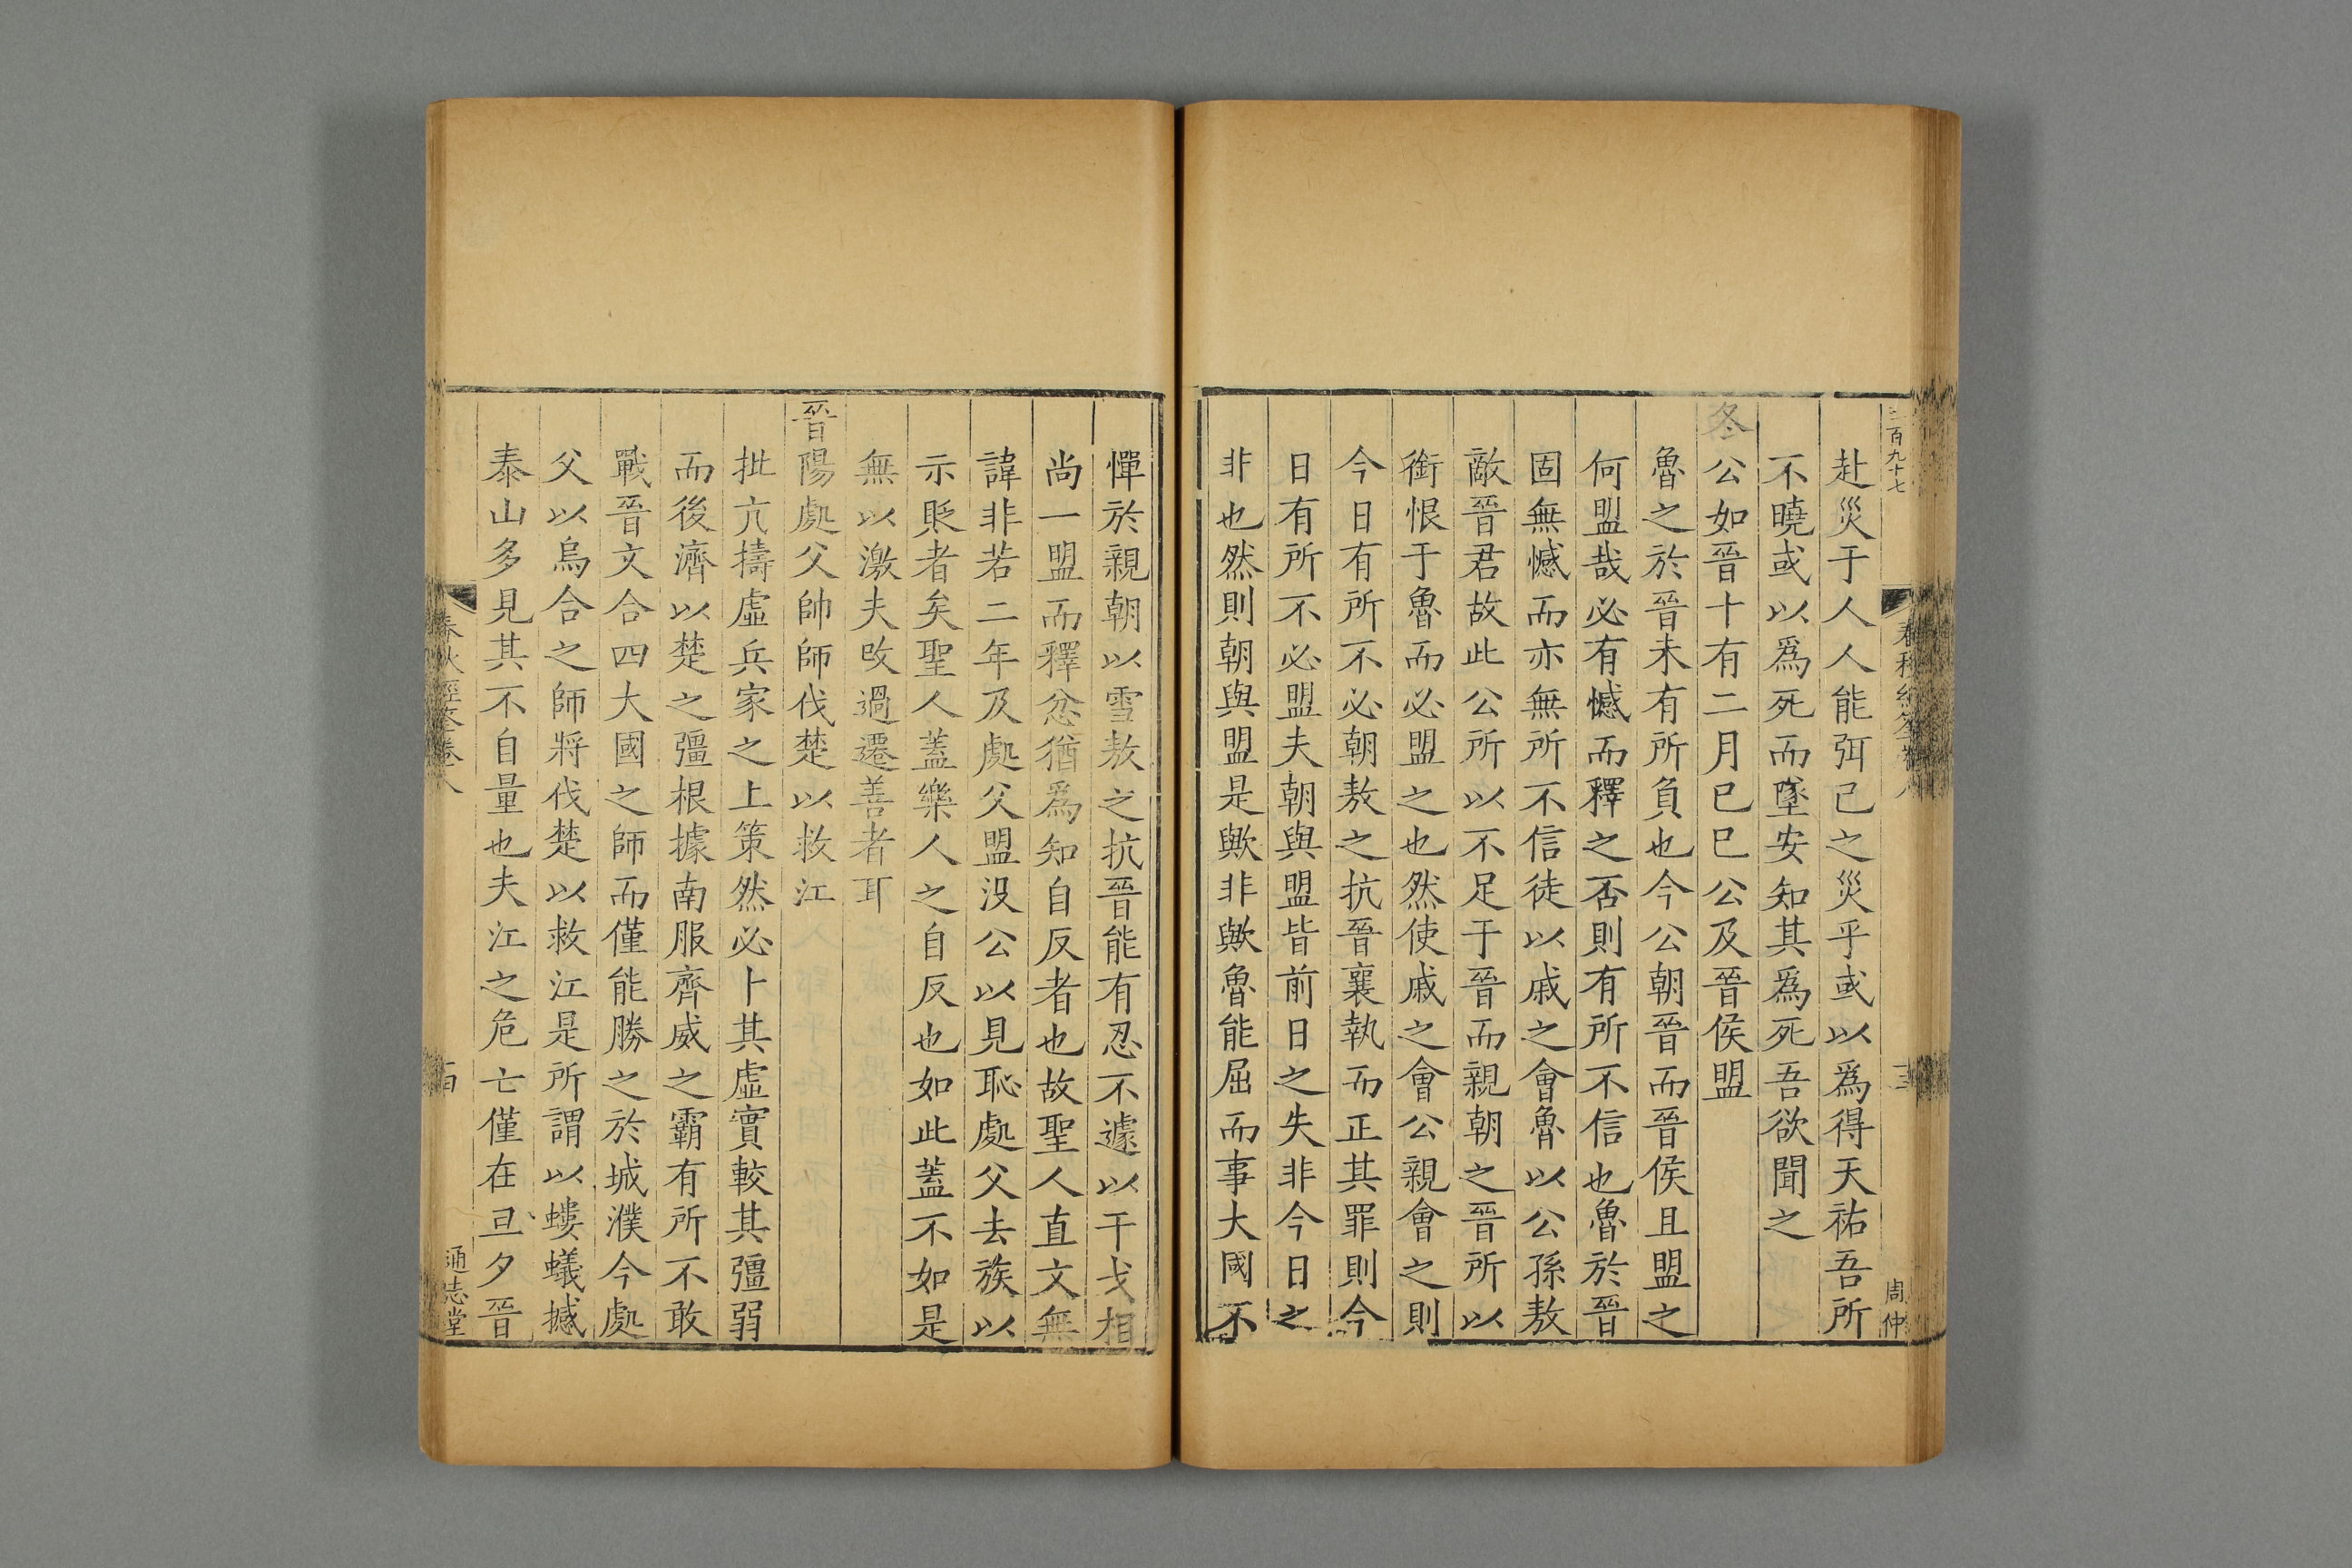 三百九十七
周仲
赴災于人人能弭己之災乎或以爲得天祐吾所
不曉或以爲死而墜安知其爲死吾欲聞之
冬公如晉十有二月已巳公及晉侯盟
魯之於晉未有所負也今公朝晉而晉侯且盟之
何盟哉必有憾而釋之否則有所不信也魯於晉
固無憾而亦無所不信徒以戚之會魯以公孫敖
敵晉君故此公所以不足于晉而親朝之晉所以
銜恨于魯而必盟之也然使戚之會公親會之則
今日有所不必朝敖之抗晉襄執而正其罪則今
日有所不必盟夫朝與盟皆前日之失非今日之
非也然則朝與盟是歟非歟魯能屈而事大國不
憚於親朝以雪敖之抗晉能有忍不遽以干戈相
尚一盟而釋忿猶爲知自反者也故聖人直文無
諱非若二年及處父盟沒公以見恥處父去族以
示貶者矣聖人蓋樂人之自反也如此蓋不如是
無以激夫改過遷善者耳
晉陽處父帥師伐楚以救江
批亢擣虛兵家之上策然必卜其虛實較其彊弱
而後濟以楚之彊根據南服齊威之霸有所不敢
戰晉文合四大國之師而僅能勝之於城濮今處
父以烏合之師將伐楚以救江是所謂以螻蟻撼
泰山多見其不自量也夫江之危亡僅在旦夕晉
春秋經筌卷八
通志堂